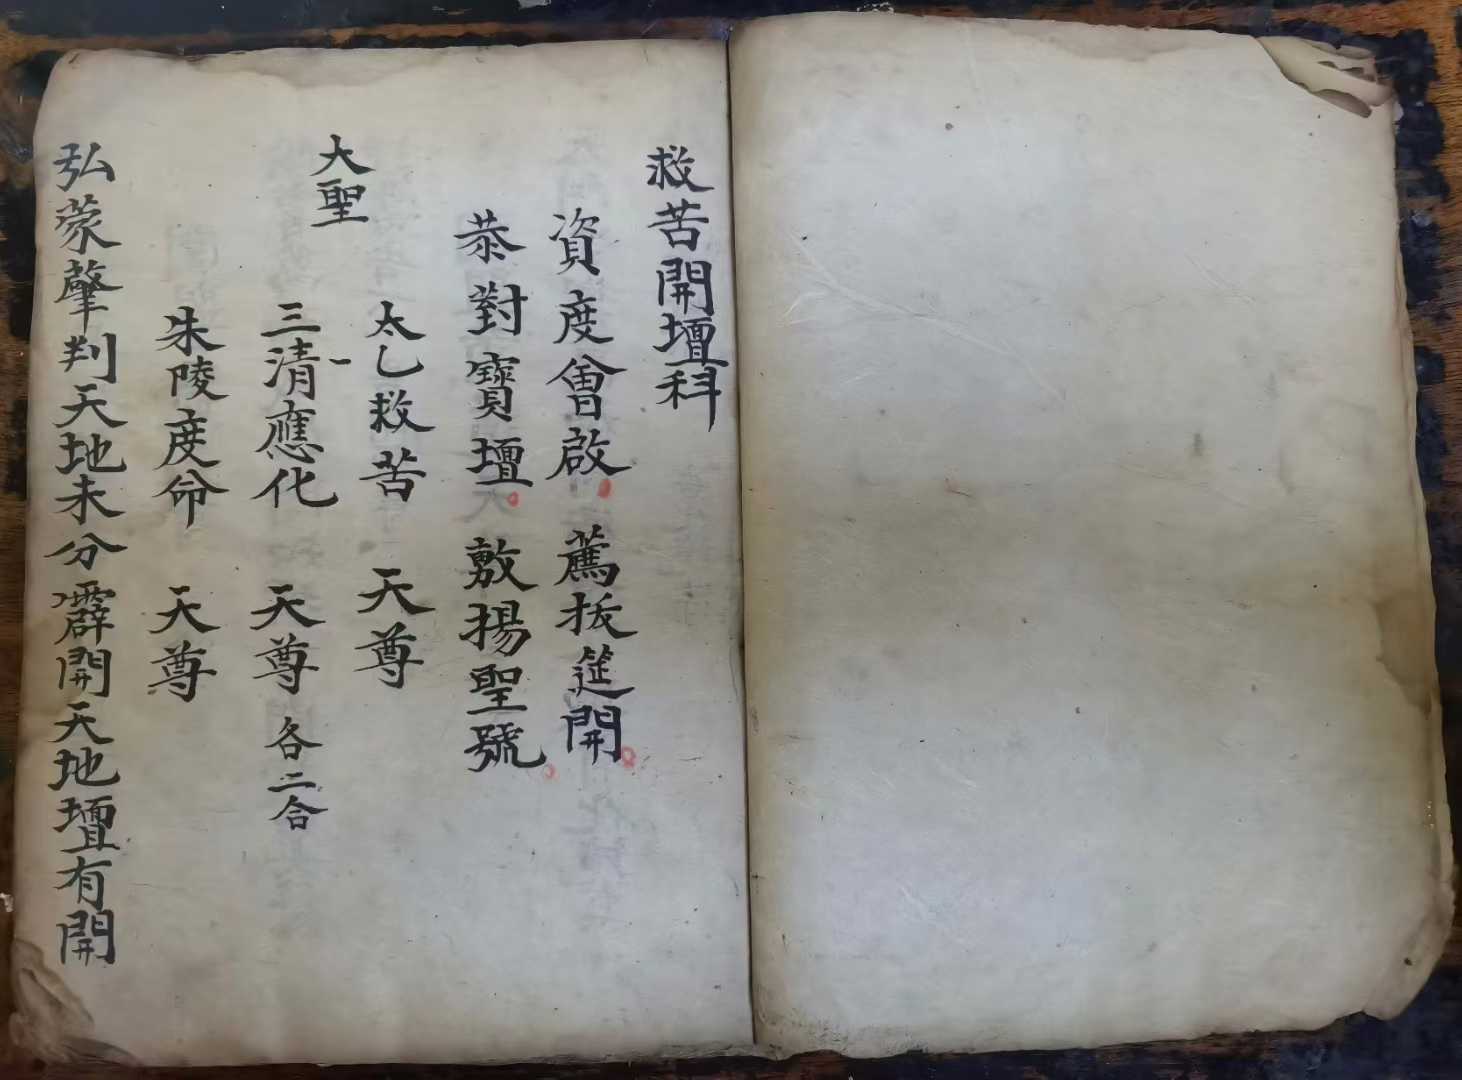 救苦開壇科
資度會啟 薦拔筵開
恭對寶壇 敷揚聖號
大聖
太乙救苦 天尊
三清應化 天尊 各二合
朱陵度命 天尊
弘蒙肇判天地未分霹開天地壇有開